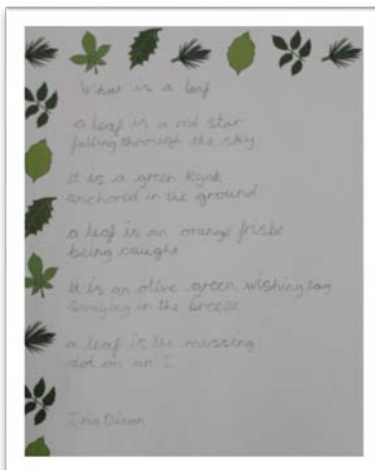 What is a leaf
a leaf is a red star
falling through the sky
It is a green kyak
anchored in the ground
a leaf is an orange frisbe
being caught
It is an olive green wishing tag
swaying in the breeze
a leaf is the missing
dot on an I
Iris Dixon